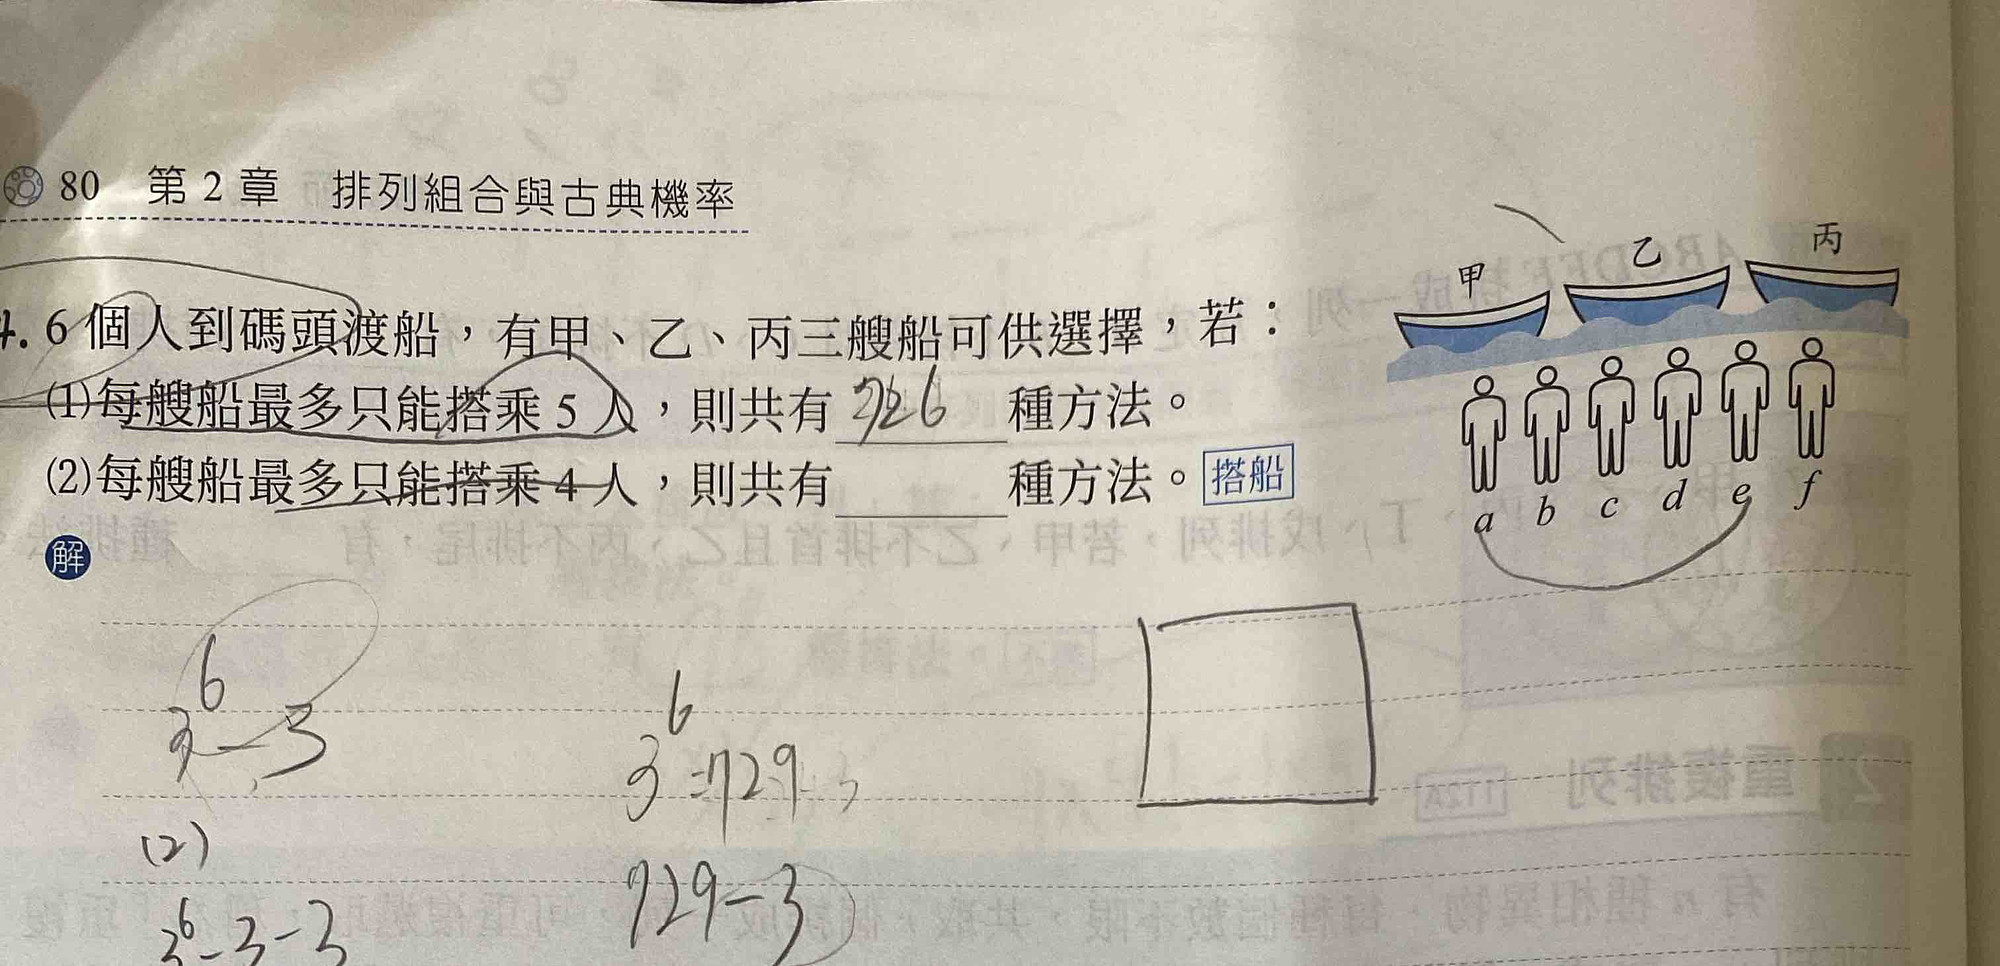 80 第 2 章 排列組合與古典機率
4. 6 個人到碼頭渡船，有甲、乙、丙三艘船可供選擇，若：
(1)每艘船最多只能搭乘 5 人，則共有 726 種方法。
(2)每艘船最多只能搭乘 4 人，則共有 種方法。 搭船
甲 乙 丙
a b c d e f
解
3^6-3
3^6=729-3
(2)
729-3
3^6-3-3